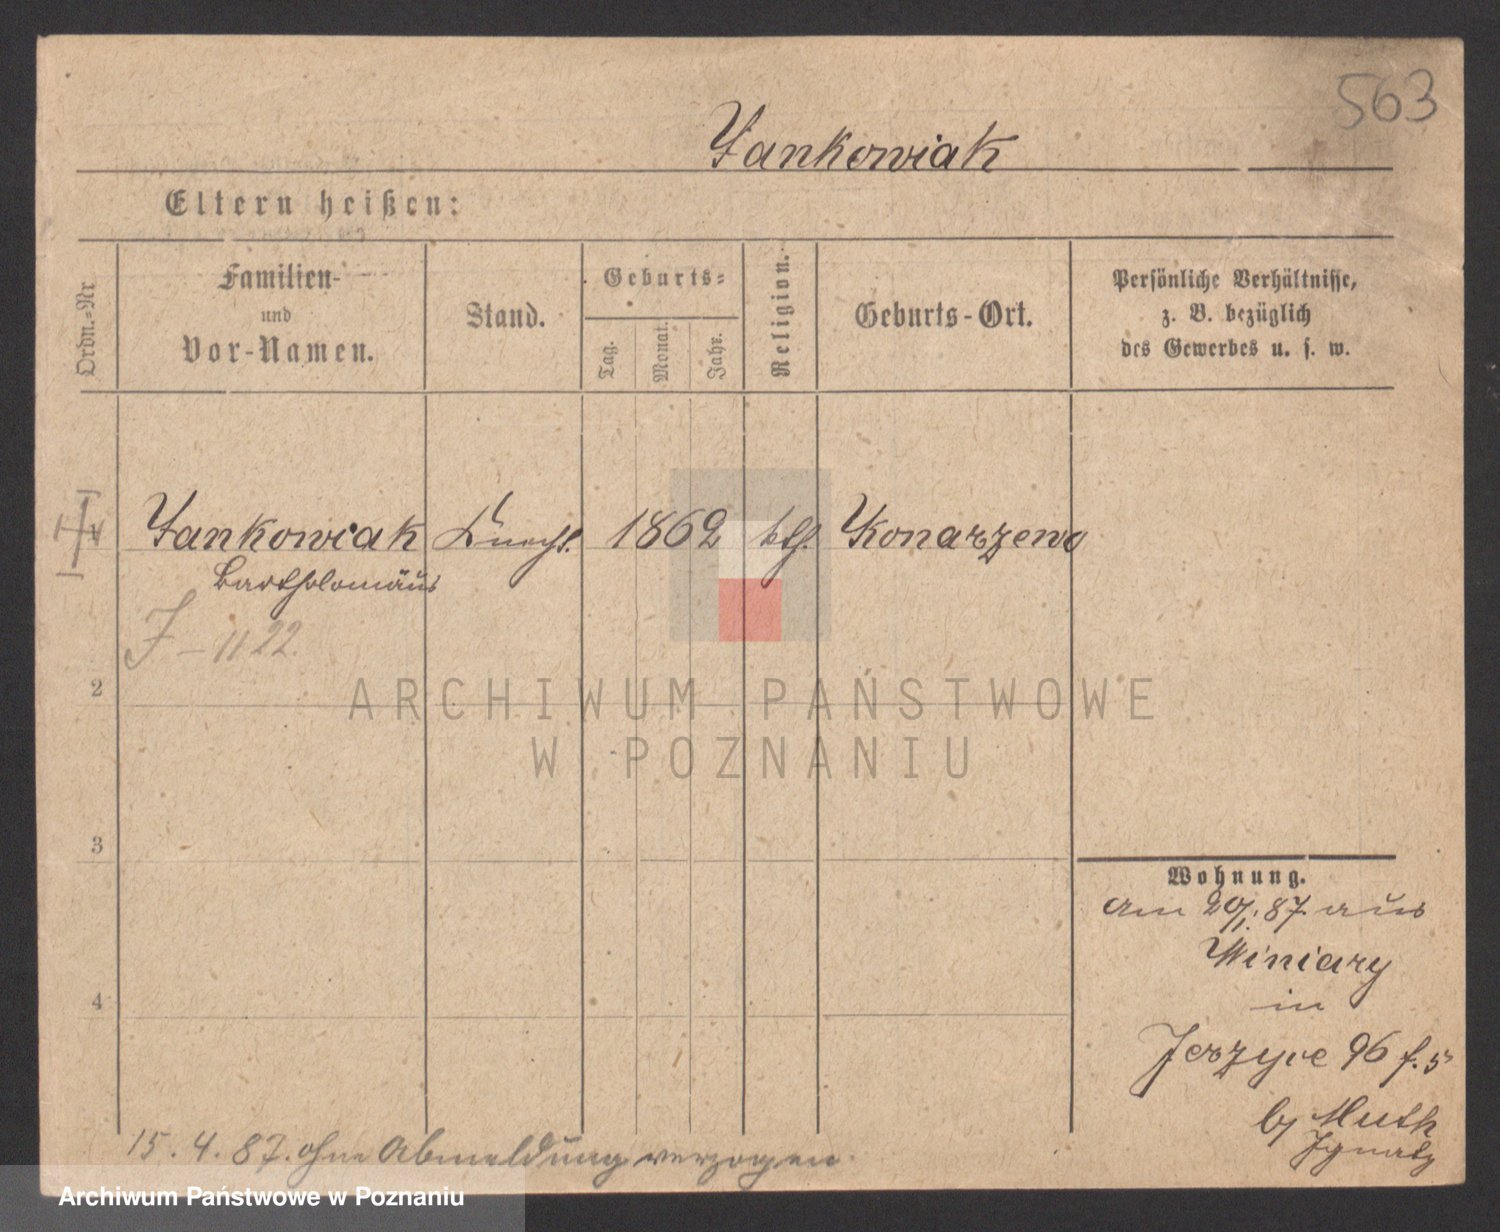 563
Jankowiak
Eltern heißen:
Ordn.-Nr
Familien-
und
Vor-Namen.
Stand.
Geburts-
Tag.
Monat.
Jahr.
Religion.
Geburts-Ort.
Persönliche Verhältnisse,
z. B. bezüglich
des Gewerbes u. s. w.
Jankowiak Knecht. 1862 kth. Konarzewo
Bartholomäus
J-1122.
2
ARCHIWUM PAŃSTWOWE
W POZNANIU
3
4
Wohnung.
am 20/1.87. aus
Winiary
in
Jerzyce 96 f. 5
by Muth
Ignatz
15. 4. 87. ohne Abmeldung verzogen.
Archiwum Państwowe w Poznaniu